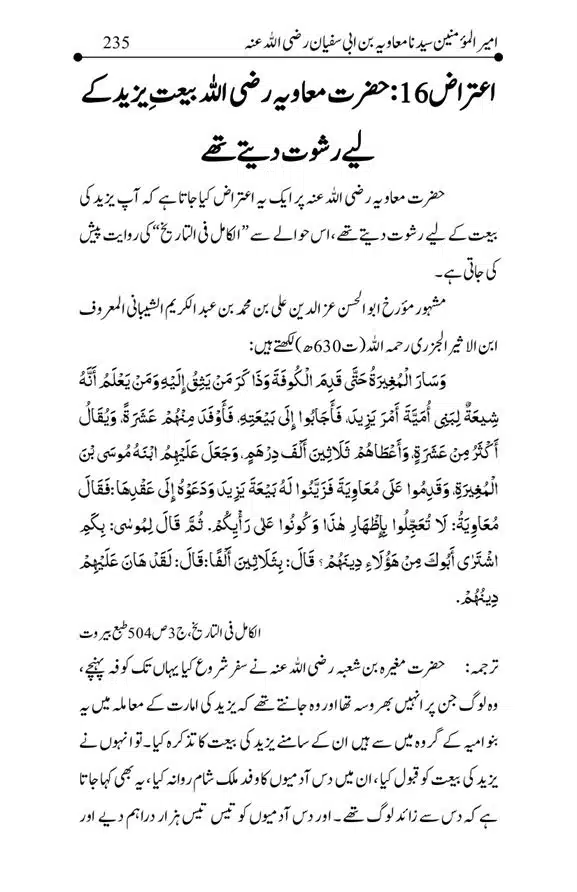 امیر المؤمنین سیدنا معاویہ بن ابی سفیان رضی اللہ عنہ 235
اعتراض16:حضرت معاویہ رضی اللہ بیعتِ یزید کے
لیے رشوت دیتے تھے
حضرت معاویہ رضی اللہ عنہ پر ایک یہ اعتراض کیا جاتا ہے کہ آپ یزید کی
بیعت کے لیے رشوت دیتے تھے، اس حوالے سے ”الکامل فی التاریخ“ کی روایت پیش
کی جاتی ہے۔
مشہور مؤرخ ابو الحسن عز الدین علی بن محمد بن عبد الکریم الشیبانی المعروف
ابن الاثیر الجزری رحمہ اللہ (ت630ھ) لکھتے ہیں:
وَسَارَ الْمُغِيرَةُ حَتَّى قَدِمَ الْكُوفَةَ وَذَاكَرَ مَنْ يَثِقُ إِلَيْهِ وَمَنْ يَعْلَمُ أَنَّهُ
شِيعَةٌ لِبَنِي أُمَيَّةَ أَمْرَ يَزِيدَ، فَأَجَابُوا إِلَى بَيْعَتِهِ، فَأَوْفَدَ مِنْهُمْ عَشَرَةً، وَيُقَالُ
أَكْثَرُ مِنْ عَشَرَةٍ، وَأَعْطَاهُمْ ثَلَاثِينَ أَلْفَ دِرْهَمٍ، وَجَعَلَ عَلَيْهِمُ ابْنَهُ مُوسَى بْنَ
الْمُغِيرَةِ، وَقَدِمُوا عَلَى مُعَاوِيَةَ فَزَيَّنُوا لَهُ بَيْعَةَ يَزِيدَ وَدَعَوْهُ إِلَى عَقْدِهَا: فَقَالَ
مُعَاوِيَةُ: لَا تُعَجِّلُوا بِإِظْهَارِ هٰذَا وَكُونُوا عَلَى رَأْيِكُمْ. ثُمَّ قَالَ لِمُوسَى: بِكَمِ
اشْتَرَى أَبُوكَ مِنْ هَؤُلَاءِ دِينَهُمْ؟ قَالَ: بِثَلَاثِينَ أَلْفًا: قَالَ: لَقَدْ هَانَ عَلَيْهِمْ
دِينُهُمْ.
الکامل فی التاریخ، ج3ص504 طبع بیروت
ترجمہ: حضرت مغیرہ بن شعبہ رضی اللہ عنہ نے سفر شروع کیا یہاں تک کوفہ پہنچے،
وہ لوگ جن پر انہیں بھروسہ تھا اور وہ جانتے تھے کہ یزید کی امارت کے معاملہ میں یہ
بنو امیہ کے گروہ میں سے ہیں ان کے سامنے یزید کی بیعت کا تذکرہ کیا۔ تو انہوں نے
یزید کی بیعت کو قبول کیا، ان میں دس آدمیوں کا وفد ملک شام روانہ کیا، یہ بھی کہا جاتا
ہے کہ دس سے زائد لوگ تھے۔ اور دس آدمیوں کو تیس تیس ہزار دراہم دیے اور